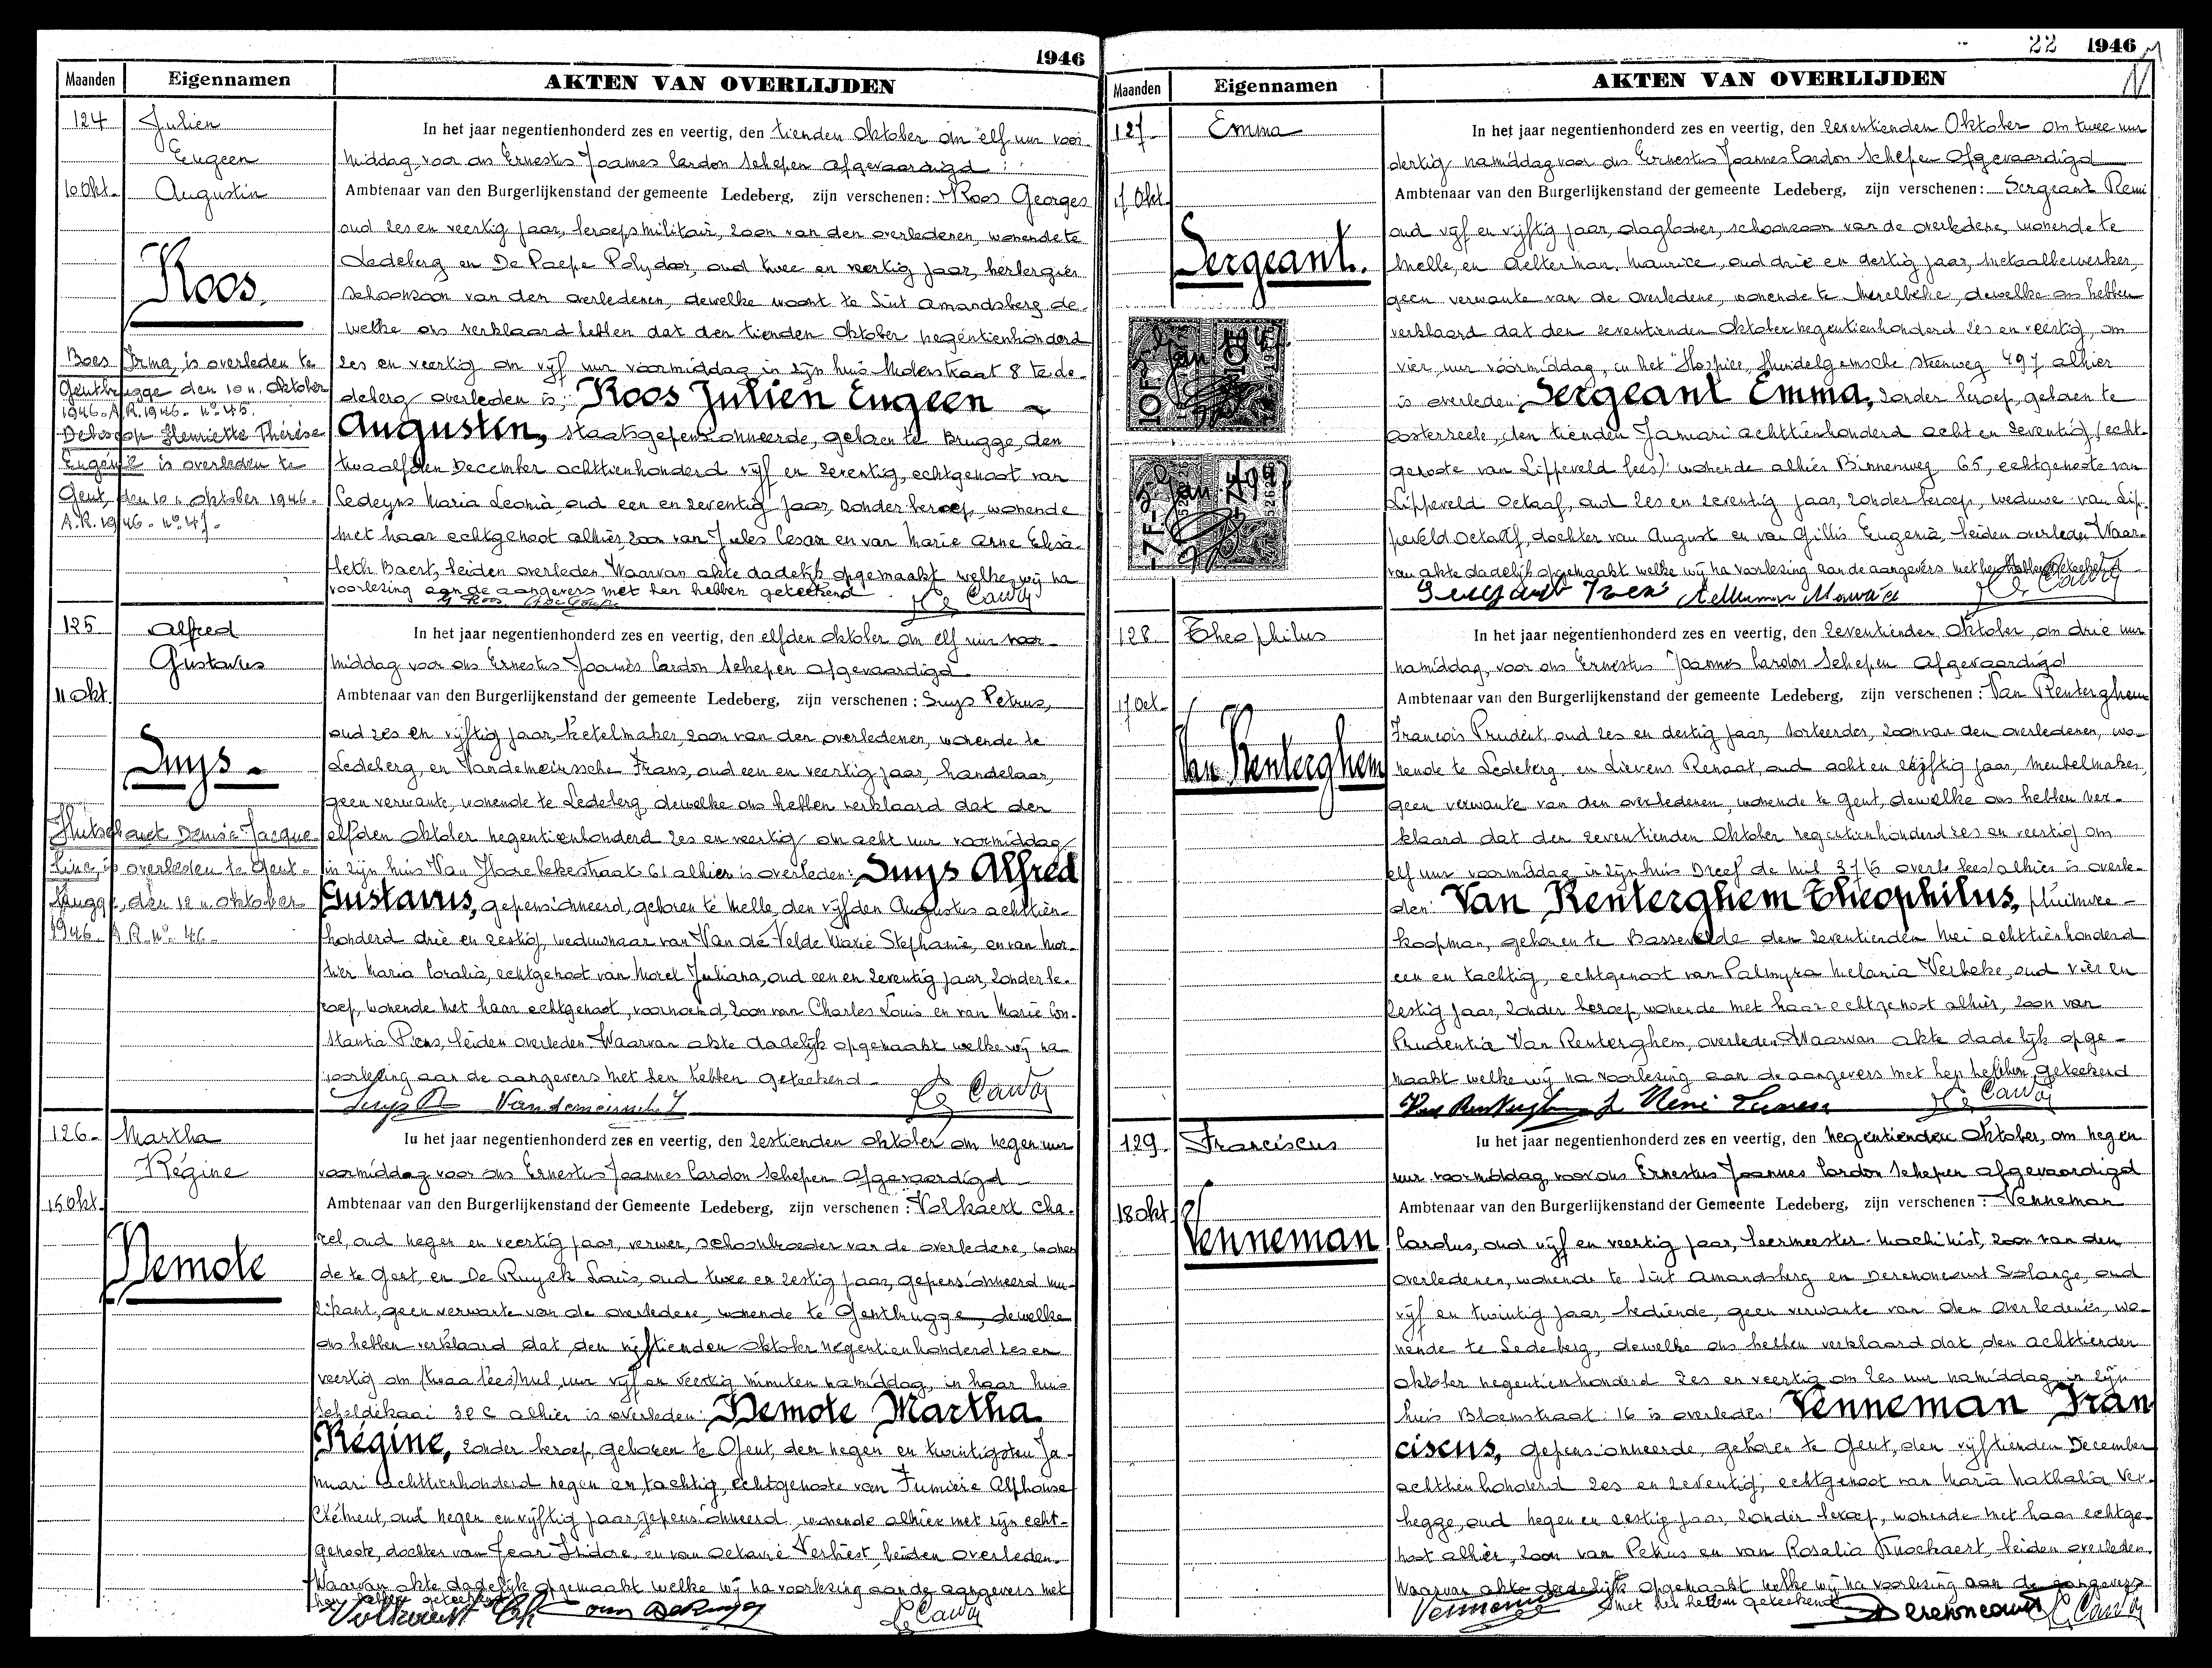 1946
Maanden Eigennamen AKTEN VAN OVERLIJDEN
124
10 Okt.
Julien
Eugeen
Augustin
Koos.
In het jaar negentienhonderd zes en veertig, den tienden Oktober om elf uur voor-
middag, voor ons Ernestus Joannes Cardon Schepen afgevaardigd
Ambtenaar van den Burgerlijkenstand der gemeente Ledeberg, zijn verschenen: Koos Georges
oud zes en veertig jaar, beroepsmilitair, zoon van den overledenen, wonende te
Ledeberg en De Paepe Polydoor, oud twee en veertig jaar, herbergier
schoonzoon van den overledenen, dewelke woont te Sint Amandsberg de-
welke ons verklaard hebben dat den tienden Oktober negentienhonderd
zes en veertig om vijf uur voormiddag in zijn huis Molenstraat 8 te Le-
deberg overleden is; Koos Julien Eugeen
Augustin, staatsgepensionneerde, geboren te Brugge, den
twaalfden December achttienhonderd vijf en zeventig, echtgenoot van
Ledeyn Maria Leonia, oud een en zeventig jaar, zonder beroep, wonende
met haar echtgenoot alhier, zoon van Jules Cesar en van Marie Anne Elisa-
beth Baert, beiden overleden. Waarvan akte dadelijk opgemaakt welke wij na
voorlezing aan de aangevers met hen hebben geteekend
G Koos
Boes Irma, is overleden te
Gentbrugge den 10n. Oktober
1946. A.R. 1946. No. 45.
Henriette Thérèse
Eugénie is overleden te
Gent, den 10n Oktober 1946.
A.R. 1946. No. 47.
125
11 Okt.
Alfred
Gustavus
Suys.
In het jaar negentienhonderd zes en veertig, den elfden Oktober om elf uur voor-
middag voor ons Ernestus Joannes Cardon Schepen afgevaardigd
Ambtenaar van den Burgerlijkenstand der gemeente Ledeberg, zijn verschenen: Suys Petrus,
oud zes en vijftig jaar, ketelmaker, zoon van den overledenen, wonende te
Ledeberg, en Vandemeirssche Frans, oud een en veertig jaar, handelaar,
geen verwante, wonende te Ledeberg, dewelke ons hebben verklaard dat den
elfden Oktober negentienhonderd zes en veertig om acht uur voormiddag
in zijn huis Van Hoorebekestraat 61 alhier is overleden: Suys Alfred
Gustavus, gepensionneerd, geboren te Melle, den vijfden Augustus achttien-
honderd drie en zestig, weduwnaar van Van de Velde Marie Stephanie, en van Mor-
tier Maria Coralia, echtgenoot van Morel Juliana, oud een en zeventig jaar, zonder be-
roep, wonende met haar echtgenoot, voornoemd, zoon van Charles Louis en van Marie Con-
stantia Piens, beiden overleden. Waarvan akte dadelijk opgemaakt welke wij na
voorlezing aan de aangevers met hen hebben geteekend
Suys P Vandemeirssche F
Denise Jacque-
line, is overleden te Gent-
brugge, den 12n. Oktober
1946. A.R. No. 46.
126
15 Okt.
Martha
Régine
Demote
In het jaar negentienhonderd zes en veertig, den zestienden Oktober om negen uur
voormiddag voor ons Ernestus Joannes Cardon Schepen afgevaardigd
Ambtenaar van den Burgerlijkenstand der Gemeente Ledeberg, zijn verschenen: Volkaert Cha-
rel, oud negen en veertig jaar, verwer, schoonbroeder van de overledene, wonen
de te Gent, en De Ruyck Louis, oud twee en zestig jaar, gepensionneerd mu-
zikant, geen verwante van de overledene, wonende te Gentbrugge, dewelke
ons hebben verklaard dat den vijftienden Oktober negentienhonderd zes en
veertig om (twaa lees) nul uur vijf en veertig minuten namiddag, in haar huis
Scheldekaai 30 C alhier is overleden: Demote Martha
Régine, zonder beroep, geboren te Gent, den negen en twintigsten Ja-
nuari achttienhonderd negen en tachtig, echtgenoote van Fumière Alphonse
Clément, oud negen en vijftig jaar, gepensionneerd, wonende alhier met zijn echt-
genoote, dochter van Jean Isidore, en van Octavie Verhiest, beiden overleden.
Waarvan akte dadelijk opgemaakt welke wij na voorlezing aan de aangevers met
hen hebben geteekend
Volkaert Ch
22 1946
Maanden Eigennamen AKTEN VAN OVERLIJDEN
127
17 Okt.
Emma
Sergeant.
In het jaar negentienhonderd zes en veertig, den zeventienden Oktober om twee uur
dertig namiddag voor ons Ernestus Joannes Cardon Schepen afgevaardigd
Ambtenaar van den Burgerlijkenstand der gemeente Ledeberg, zijn verschenen: Sergeant Remi
oud vijf en vijftig jaar, daglooner, schoonzoon van de overledene, wonende te
Melle, en Aelterman Maurice, oud drie en dertig jaar, metaalbewerker,
geen verwante van de overledene, wonende te Merelbeke, dewelke ons hebben
verklaard dat den zeventienden Oktober negentienhonderd zes en veertig, om
vier uur voormiddag, in het Hospice, Hundelgemsche steenweg 497 alhier
is overleden: Sergeant Emma, zonder beroep, geboren te
Oosterzeele, den tienden Januari achttienhonderd acht en zeventig, (echt-
genoote van Lippeveld lees) wonende alhier Binnenweg 65, echtgenoote van
Lippeveld Octaaf, oud zes en zeventig jaar, zonder beroep, weduwe van Lip-
peveld Octaaf, dochter van August en van Gillis Eugenia, beiden overleden. Waar-
van akte dadelijk opgemaakt welke wij na voorlezing aan de aangevers met hen hebben geteekend
Aelterman Maurice
10F
7F
128
17 Oct.
Theophilus
Van Renterghem
In het jaar negentienhonderd zes en veertig, den zeventienden Oktober, om drie uur
namiddag, voor ons Ernestus Joannes Cardon Schepen afgevaardigd
Ambtenaar van den Burgerlijkenstand der gemeente Ledeberg, zijn verschenen: Van Renterghem
Francois Prudent, oud zes en dertig jaar, sorteerder, zoon van den overledenen, wo-
nende te Ledeberg, en Lievens Renaat, oud acht en vijftig jaar, meubelmaker,
geen verwante van den overledenen, wonende te Gent, dewelke ons hebben ver-
klaard dat den zeventienden Oktober negentienhonderd zes en veertig om
elf uur voormiddag in zijn huis Dreef de (nul 37/6 overb. lees) alhier is overle-
den: Van Renterghem Theophilus, pluimvee-
koopman, geboren te Bassevelde den zeventienden Mei achttienhonderd
een en tachtig, echtgenoot van Palmyra Melania Verbeke, oud vier en
zestig jaar, zonder beroep, wonende met haar echtgenoot alhier, zoon van
Prudentia Van Renterghem, overleden. Waarvan akte dadelijk opge-
maakt welke wij na voorlezing aan de aangevers met hen hebben geteekend
129
18 Okt.
Franciscus
Venneman
In het jaar negentienhonderd zes en veertig, den negentienden Oktober, om negen
uur voormiddag, voor ons Ernestus Joannes Cardon Schepen afgevaardigd
Ambtenaar van den Burgerlijkenstand der Gemeente Ledeberg, zijn verschenen: Venneman
Carolus, oud vijf en veertig jaar, leermeester-machinist, zoon van den
overledenen, wonende te Sint Amandsberg en Derenoncourt Solange, oud
vijf en twintig jaar, bediende, geen verwante van den overledenen, wo-
nende te Ledeberg, dewelke ons hebben verklaard dat den achttienden
Oktober negentienhonderd zes en veertig om zes uur namiddag in zijn
huis Bloemstraat 16 is overleden: Venneman Fran
ciscus, gepensionneerde, geboren te Gent, den vijftienden December
achttienhonderd zes en zeventig, echtgenoot van Maria Nathalia Ver-
hegge, oud negen en zestig jaar, zonder beroep, wonende met haar echtge-
noot alhier, zoon van Petrus en van Rosalia Knockaert, beiden overleden.
Waarvan akte dadelijk opgemaakt welke wij na voorlezing aan de aangevers
met hen hebben geteekend
Venneman Derenoncourt